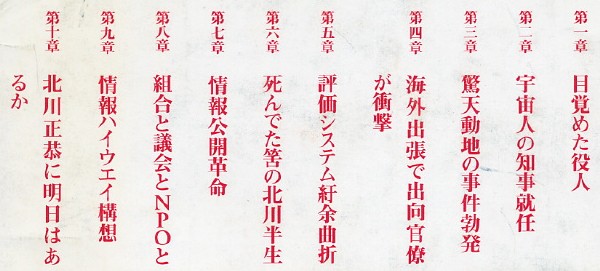 第一章 目覚めた役人
第二章 宇宙人の知事就任
第三章 驚天動地の事件勃発
第四章 海外出張で出向官僚
が衝撃
第五章 評価システム紆余曲折
第六章 死んでた筈の北川半生
第七章 情報公開革命
第八章 組合と議会とNPOと
第九章 情報ハイウエイ構想
第十章 北川正恭に明日はあ
るか